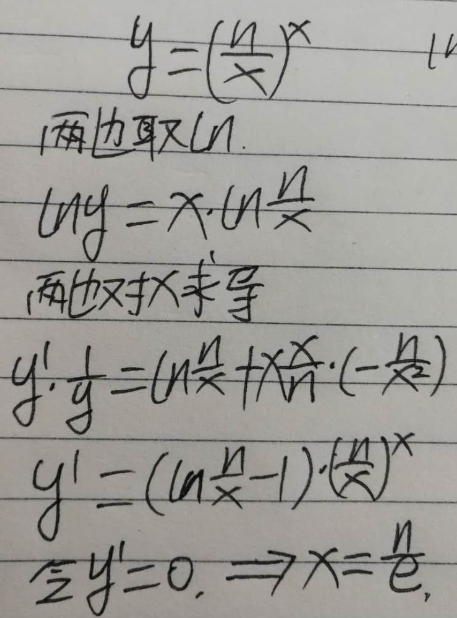 y = (n/x)^x
两边取ln.
lny = x·ln n/x
两边对x求导
y'·1/y = ln n/x + x x/n·(-n/x²)
y' = (ln n/x - 1)·(n/x)^x
令y'=0. ⇒ x = n/e.